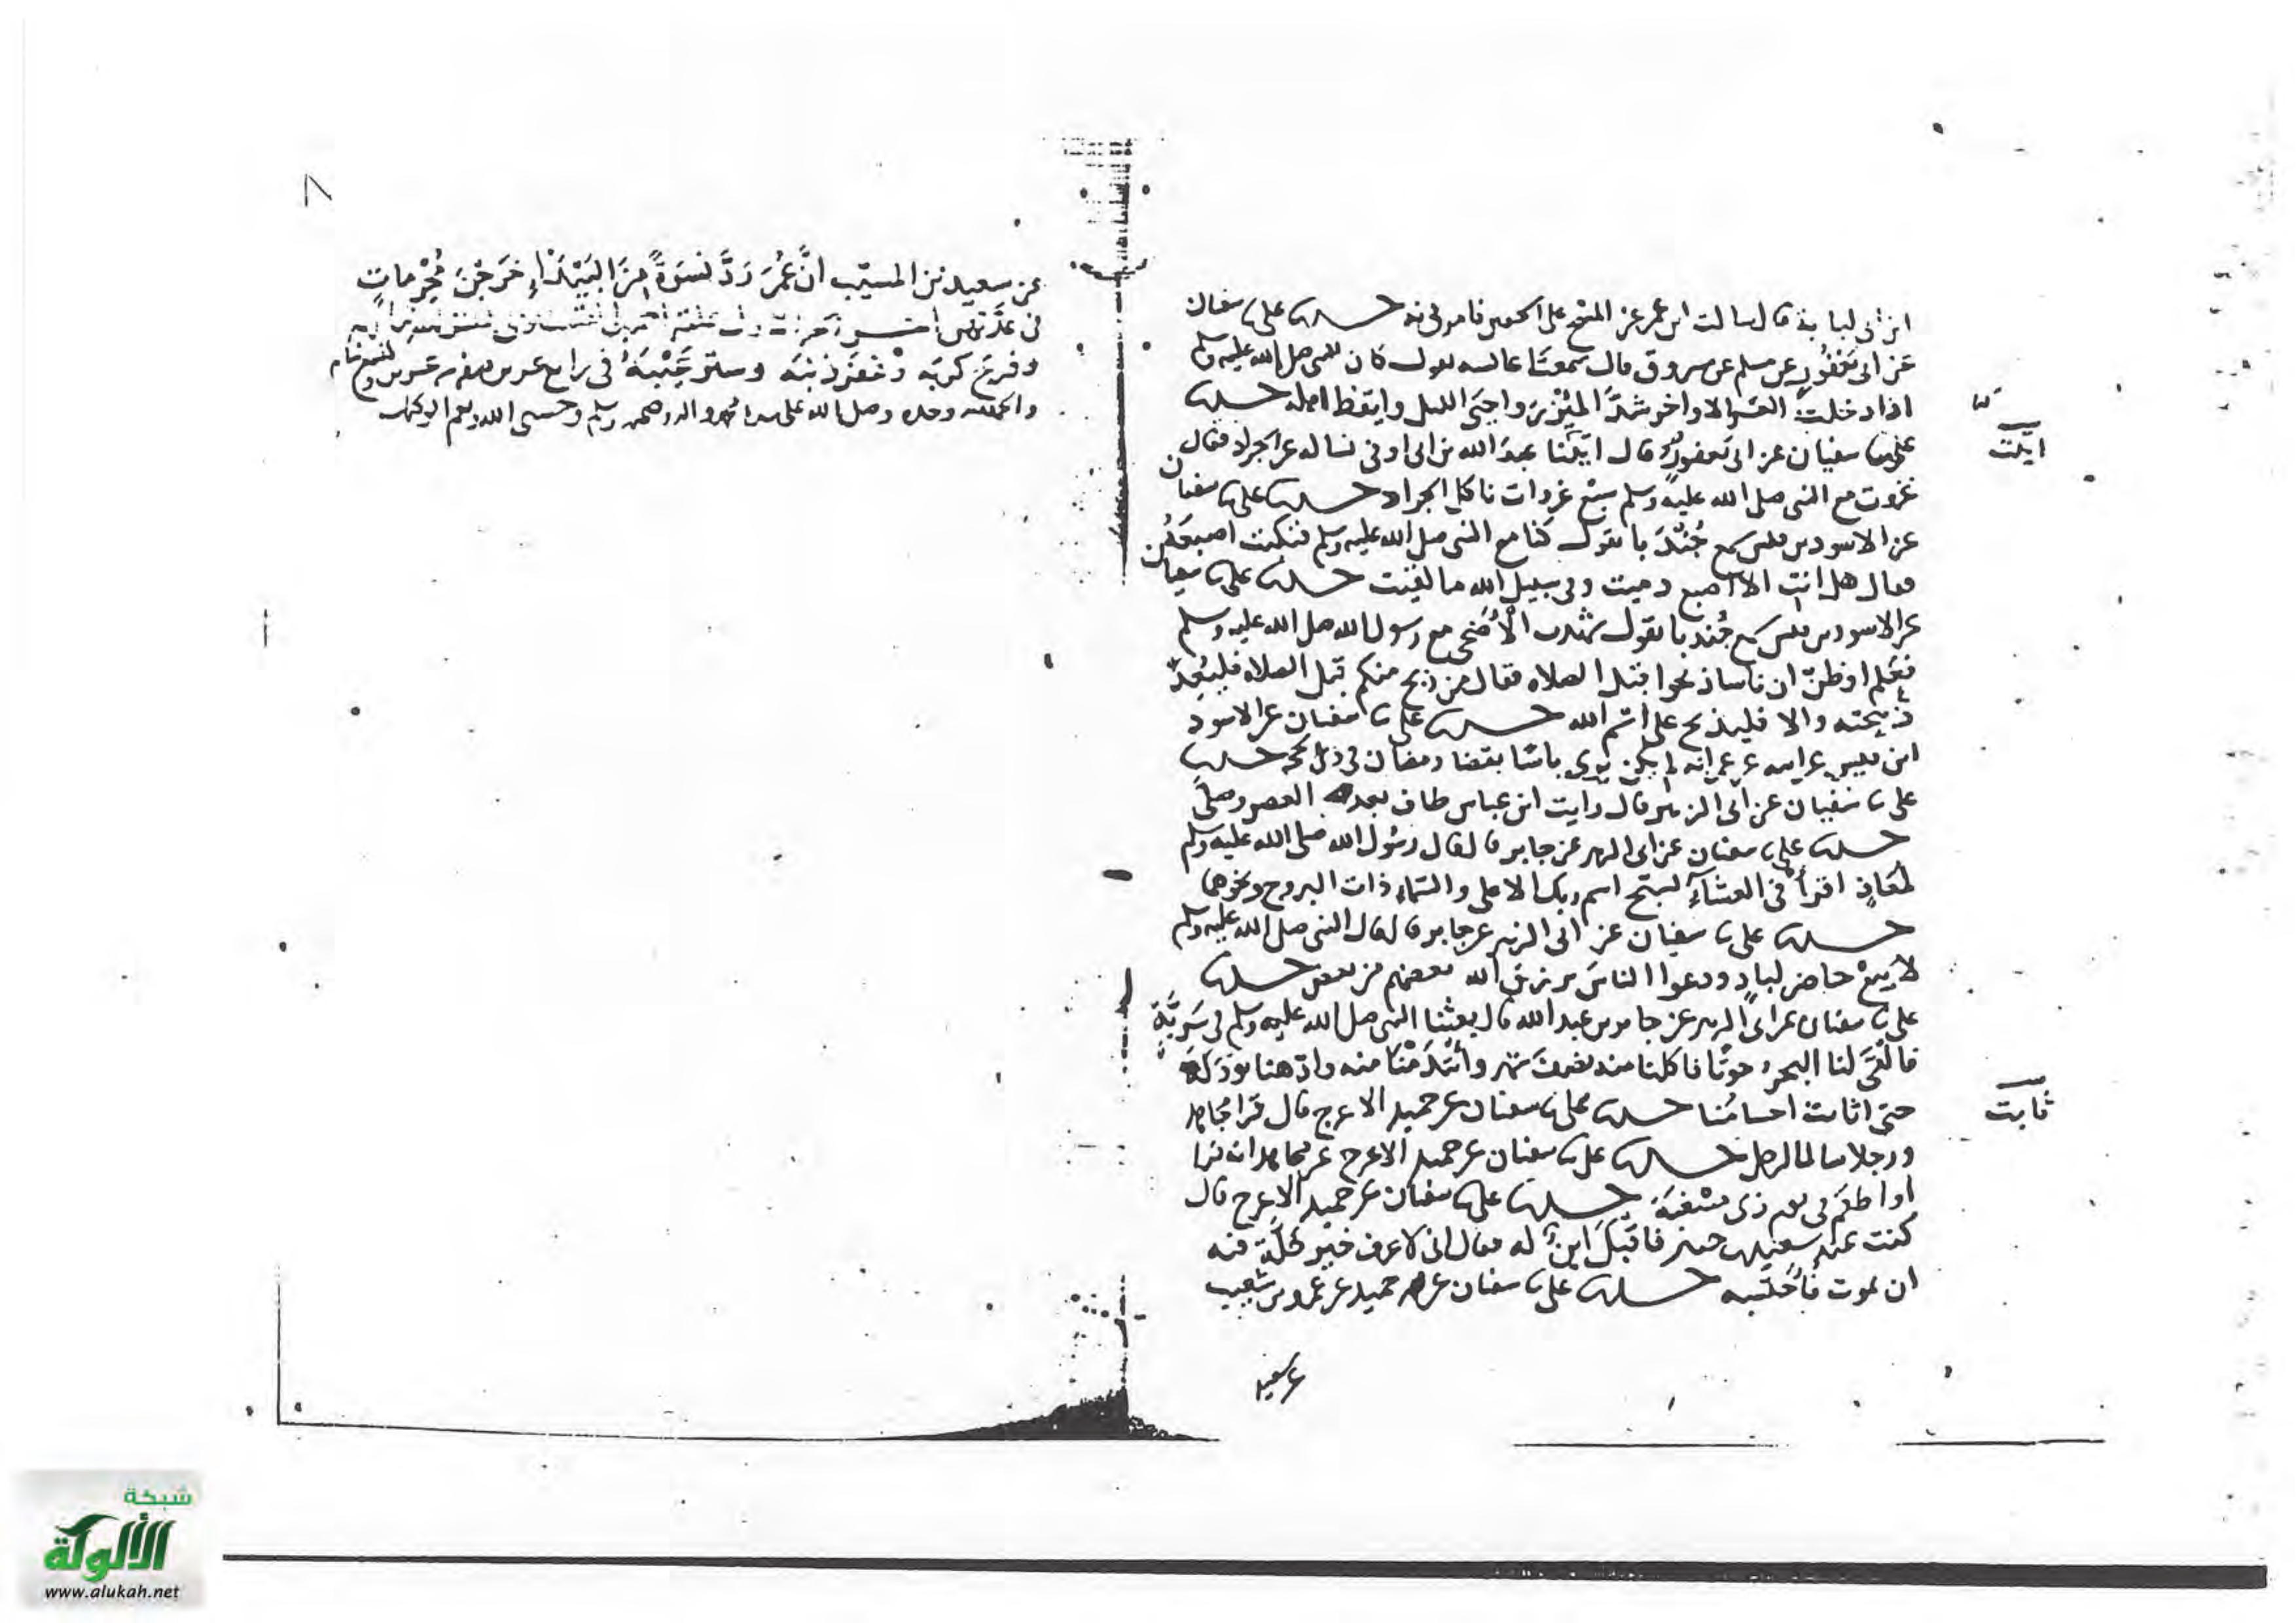 ابن ابي لبابة قال سالت ابن عمر عن المسح على الخفين فامرني به حدثنا علي نا سفيان
عن ابي يعفور عن مسلم عن مسروق قال سمعت عائشة تقول كان النبي صلى الله عليه وسلم
اذا دخلت العشر الاواخر شد المئزر واحيى الليل وايقظ اهله حدثنا
علي نا سفيان عن ابي يعفور قال اتينا عبد الله بن ابي اوفى نساله عن الجراد فقال
غزوت مع النبي صلى الله عليه وسلم سبع غزوات ناكل الجراد حدثنا علي نا سفيان
عن الاسود بن قيس سمع جندبا يقول كنا مع النبي صلى الله عليه وسلم فنكبت اصبعه
فقال هل انت الا اصبع دميت وفي سبيل الله ما لقيت حدثنا علي نا سفيان
عن الاسود بن قيس سمع جندبا يقول شهدت الاضحى مع رسول الله صلى الله عليه وسلم
فعلم او ظن ان ناسا ذبحوا قبل الصلاه فقال من ذبح منكم قبل الصلاه فليعد
ذبيحته والا فليذبح على اسم الله حدثنا علي نا سفيان عن الاسود
ابن قيس عن ابيه عن عمر انه لم يكن يرى باسا بقضا رمضان في ذي الحجه حدثنا
علي نا سفيان عن ابي الزبير قال رايت ابن عباس طاف بعد العصر وصلى
حدثنا علي نا سفيان عن ابي الزبير عن جابر قال قال رسول الله صلى الله عليه وسلم
لمعاذ اقرأ في العشاء بسبح اسم ربك الاعلى والسماء ذات البروج ونحوها
حدثنا علي نا سفيان عن ابي الزبير عن جابر قال قال النبي صلى الله عليه وسلم
لا يبع حاضر لباد ودعوا الناس يرزق الله بعضهم من بعض حدثنا
علي نا سفيان عن ابي الزبير عن جابر بن عبد الله قال بعثنا النبي صلى الله عليه وسلم في سرية
فالقى لنا البحر حوتا فاكلنا منه نصف شهر وائتدمنا منه وادهنا بودكه
حتى اثابت اجسامنا حدثنا علي نا سفيان عن حميد الاعرج قال قرا مجاهد
ورجلا سالما لرجل حدثنا علي نا سفيان عن حميد الاعرج عن مجاهد انه قرا
او اطعم في يوم ذي مسغبة حدثنا علي نا سفيان عن حميد الاعرج قال
كنت عند سعيد بن جبير فاقبل ابن له فقال اني لاعرف خير خلة فيه
ان يموت فأحتسبه حدثنا علي نا سفيان عن حميد عن عمرو بن شعيب
عن سعيد
ايلت
ثابت
عن سعيد بن المسيب ان عمر رد نسوة من البيداء خرجن محرمات
في عدتهن
وفرج كربه وغفر ذنبه وستر عيبه في رابع عشرين صفر
والحمد لله وحده وصلى الله على سيدنا محمد واله وصحبه وسلم وحسبي الله ونعم الوكيل
شبكة
الألوكة
www.alukah.net